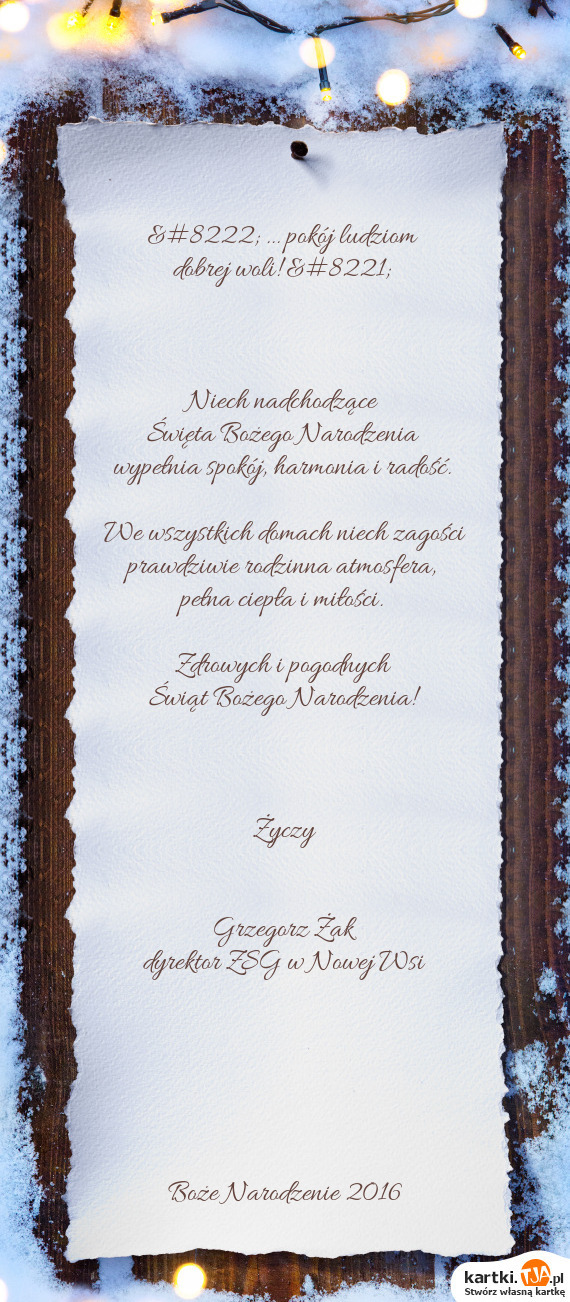 &#8222; ... pokój ludziom
dobrej woli!&#8221;
Niech nadchodzące
Święta Bożego Narodzenia
wypełnia spokój, harmonia i radość.
We wszystkich domach niech zagości
prawdziwie rodzinna atmosfera,
pełna ciepła i miłości.
Zdrowych i pogodnych
Świąt Bożego Narodzenia!
Życzy
Grzegorz Żak
dyrektor ZSG w Nowej Wsi
Boże Narodzenie 2016
kartki.TJA.pl
Stwórz własną kartkę